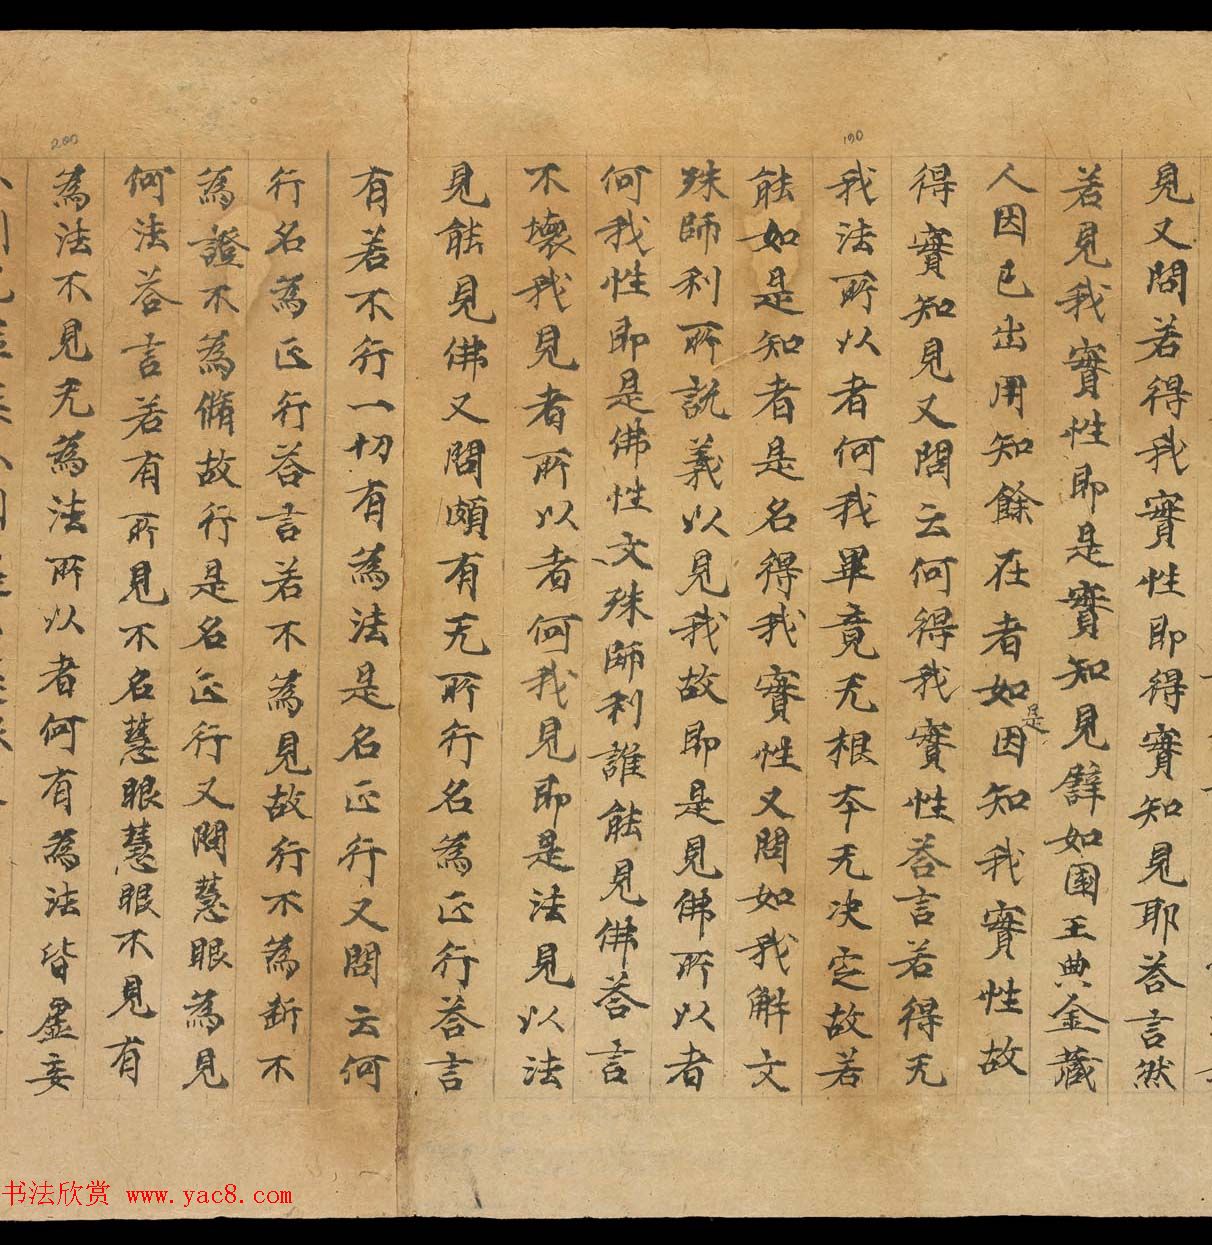 見又問若得我實性即得實知見耶荅言然
若見我實性即是實知見譬如國王典金藏
人因已出用知餘在者如是因知我實性故
得實知見又問云何得我實性荅言若得无
我法所以者何我畢竟无根夲无决㝎故若
能如是知者是名得我實性又問如我解文
殊師利所說義以見我故即是見佛所以者
何我性即是佛性文殊師利誰能見佛荅言
不壞我見者所以者何我見即是法見以法
見能見佛又問頗有无所行名為正行荅言
有若不行一切有為法是名正行又問云何
行名為正行荅言若不為見故行不為斷不
為證不為脩故行是名正行又問慧眼為見
何法荅言若有所見不名慧眼慧眼不見有
為法不見无為法所以者何有為法皆虛妄
190
200
书法欣赏 www.yac8.com